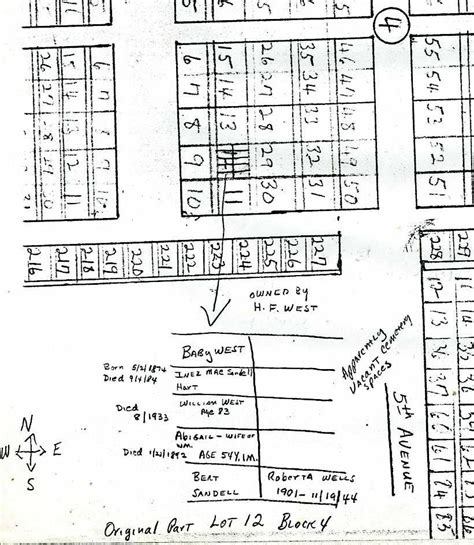 4
26 15 6 6 15 26 35 46 55
27 14 7 7 14 27 34 47 54
13 8 8 13 28 33 48 53
12 9 9 29 32 49 52
11 10 10 11 30 31 50 51
216 217 218 219 220 221 222 223 224 225 226 227 228 229
OWNED BY
H. F. WEST
BABY WEST
Born 5/21/1874
Died 9/4/84
INEZ MAE Sandell
Hart
Died
8/1933
WILLIAM WEST
Age 83
ABIGAIL - WIFE OF
WM.
Died 1/21/1892 AGE 54Y, 1M.
BERT
SANDELL
ROBERTA WELLS
1901 - 11/19/44
APPARENTLY
VACANT CEMETERY
SPACES
5th AVENUE
N
W E
S
Original Part LOT 12 BLOCK 4